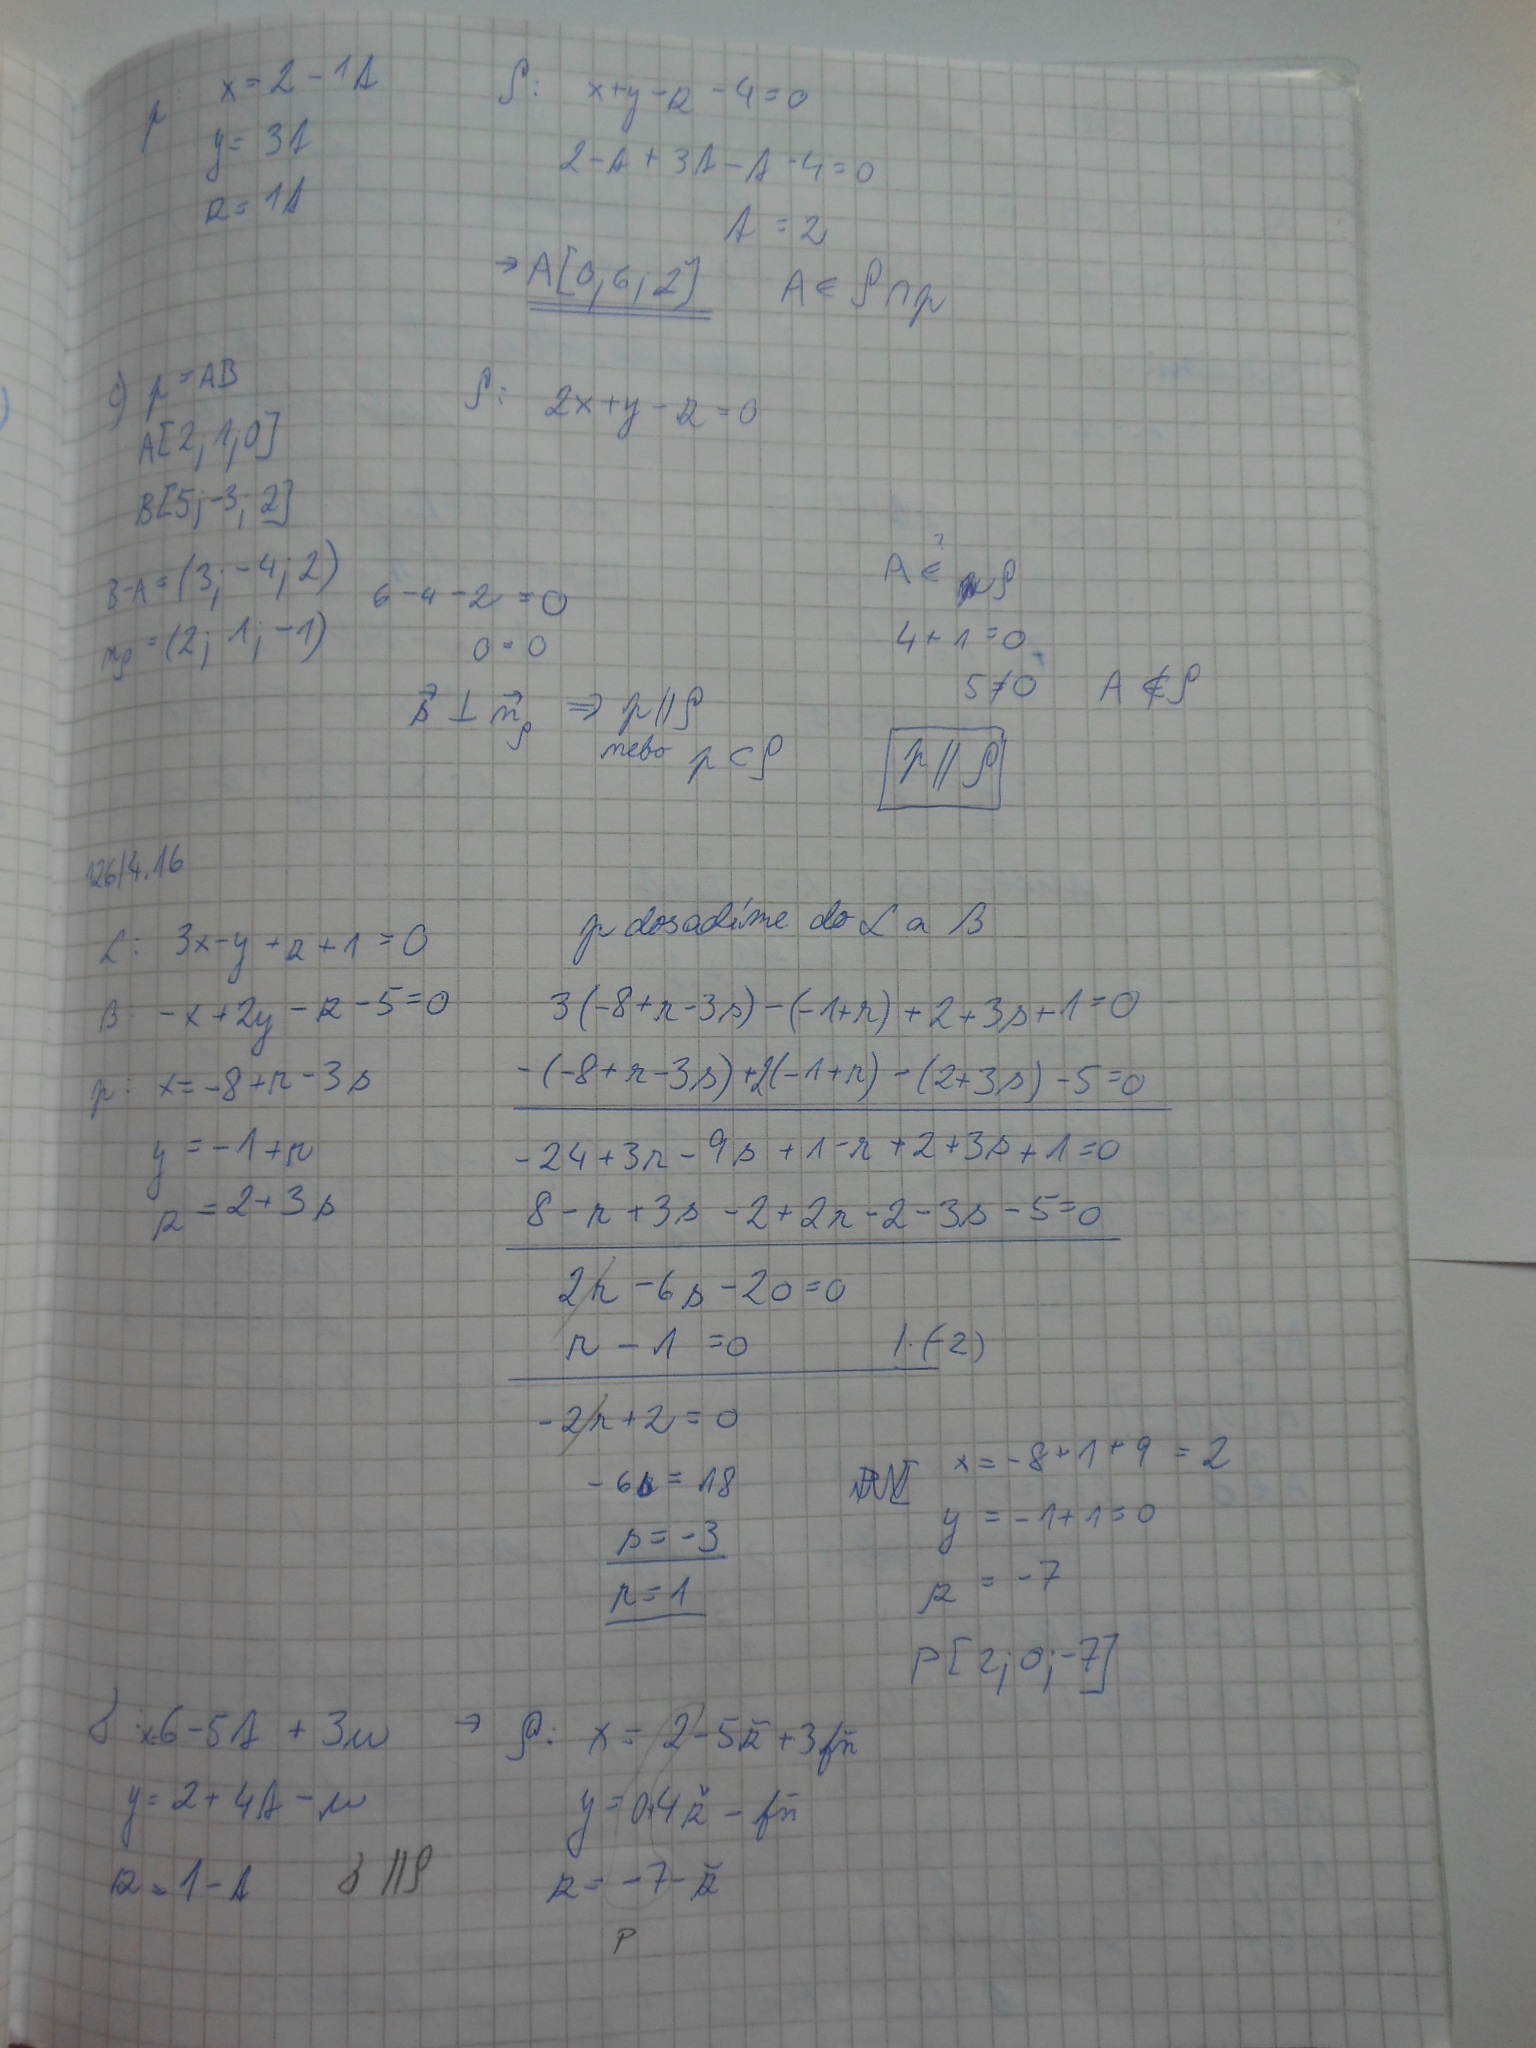 p: x = 2 - 1t
y = 3t
z = 1t
ρ: x + y - z - 4 = 0
2 - t + 3t - t - 4 = 0
t = 2
→ A[0; 6; 2] A ∈ ρ ∩ p
c) p = AB
A[2; 1; 0]
B[5; -3; 2]
ρ: 2x + y - z = 0
B-A = (3; -4; 2)
n_ρ = (2; 1; -1)
6 - 4 - 2 = 0
0 = 0
s⃗ ⊥ n⃗_ρ ⇒ p ∥ ρ
nebo p ⊂ ρ
A ∈? ρ
4 + 1 = 0
5 ≠ 0 A ∉ ρ
p ∥ ρ
126/4.16
α: 3x - y + z + 1 = 0
β: -x + 2y - z - 5 = 0
γ: x = -8 + r - 3s
y = -1 + r
z = 2 + 3s
γ dosadíme do α a β
3(-8 + r - 3s) - (-1 + r) + 2 + 3s + 1 = 0
-(-8 + r - 3s) + 2(-1 + r) - (2 + 3s) - 5 = 0
-24 + 3r - 9s + 1 - r + 2 + 3s + 1 = 0
8 - r + 3s - 2 + 2r - 2 - 3s - 5 = 0
2r - 6s - 20 = 0
r - 1 = 0 /·(-2)
-2r + 2 = 0
-6s = 18
s = -3
r = 1
x = -8 + 1 + 9 = 2
y = -1 + 1 = 0
z = -7
P[2; 0; -7]
δ: x = 6 - 5t + 3u → ρ: x = 2 - 5k̄ + 3m̄
y = 2 + 4t - u
z = 1 - t δ ∥ ρ
P